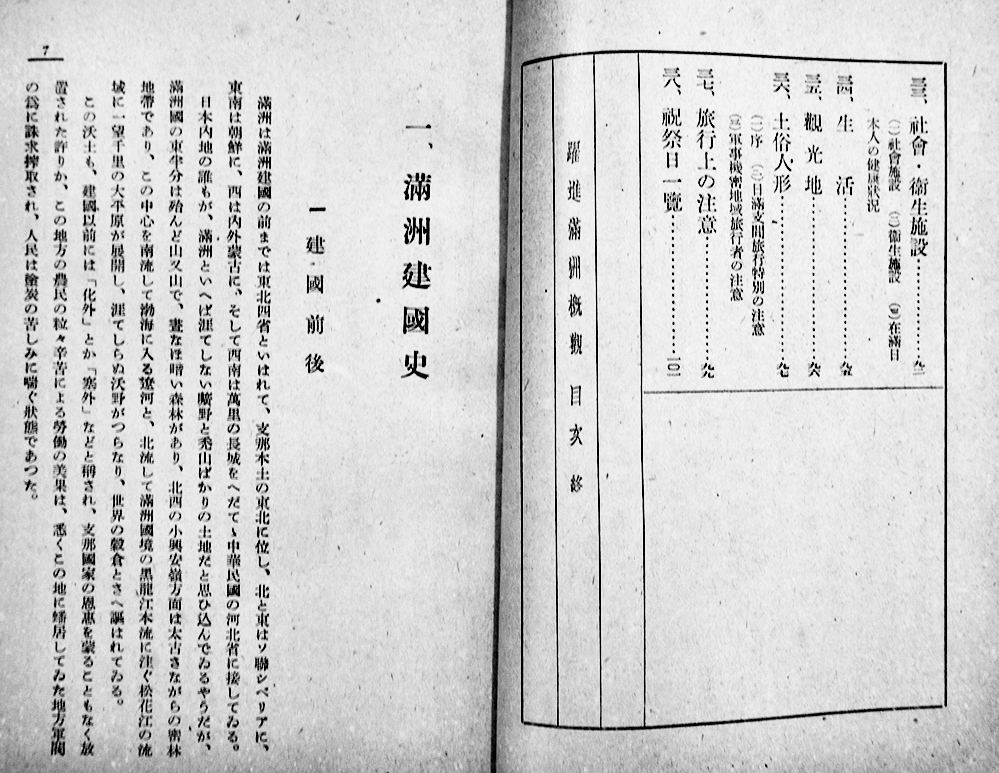 三三、社會・衞生施設…………九二
(一)社會施設 (二)衞生施設 (三)在滿日
本人の健康狀況
三四、生活…………九五
三五、觀光地…………九六
三六、土俗人形…………九七
(一)序 (二)日滿支間旅行特別の注意
(三)軍事機密地域旅行者の注意
三七、旅行上の注意…………九九
三八、祝祭日一覽…………一〇一
躍進滿洲概觀 目次 終
一、滿洲建國史
一 建國前後
滿洲は滿洲建國の前までは東北四省といはれて、支那本土の東北に位し、北と東はソ聯シベリアに、
東南は朝鮮に、西は內外蒙古に、そして西南は萬里の長城をへだてゝ中華民國の河北省に接してゐる。
日本內地の誰もが、滿洲といへば涯てしない曠野と禿山ばかりの土地だと思ひ込んでゐるやうだが、
滿洲國の東半分は殆んど山又山で、晝なほ暗い森林があり、北西の小興安嶺方面は太古さながらの密林
地帶であり、この中心を南流して渤海に入る遼河と、北流して滿洲國境の黑龍江本流に注ぐ松花江の流
域に一望千里の大平原が展開し、涯てしらぬ沃野がつらなり、世界の穀倉とさへ謳はれてゐる。
この沃土も、建國以前には「化外」とか「塞外」などと稱され、支那國家の恩惠を蒙ることもなく放
置された許りか、この地方の農民の粒々辛苦による勞働の美果は、悉くこの地に蟠居してゐた地方軍閥
の爲に誅求搾取され、人民は塗炭の苦しみに喘ぐ狀態であつた。
7